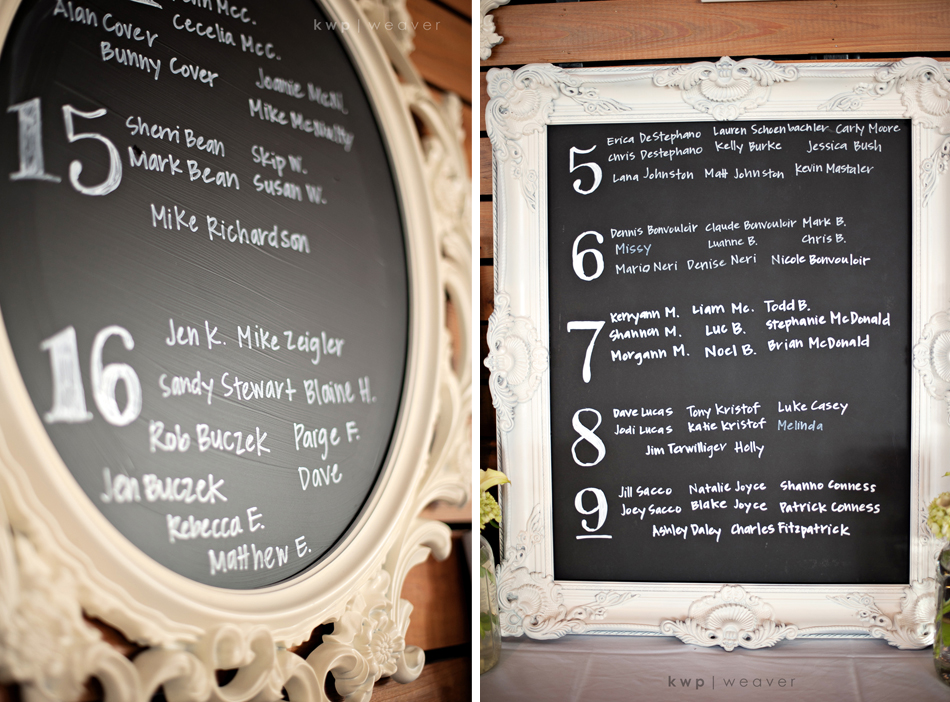 Mcc.
Cecelia McC.
Alan Cover
Bunny Cover
Joanie McN.
Mike McNulty
15
Sherri Bean
Mark Bean
Skip W.
Susan W.
Mike Richardson
16
Jen K. Mike Zeigler
Sandy Stewart Blaine H.
Rob Buczek Paige F.
Jen Buczek Dave
Rebecca E.
Matthew E.
kwp | weaver
5
Erica DeStephano Lauren Schoenbachler Carly Moore
Chris Destephano Kelly Burke Jessica Bush
Lana Johnston Matt Johnston Kevin Mastaler
6
Dennis Bonvouloir Claude Bonvouloir Mark B.
Missy Luanne B. Chris B.
Mario Neri Denise Neri Nicole Bonvouloir
7
Kerryann M. Liam Mc. Todd B.
Shannon M. Luc B. Stephanie McDonald
Morgann M. Noel B. Brian McDonald
8
Dave Lucas Tony Kristof Luke Casey
Jodi Lucas Katie Kristof Melinda
Jim Terwilliger Holly
9
Jill Sacco Natalie Joyce Shanno Conness
Joey Sacco Blake Joyce Patrick Conness
Ashley Daley Charles Fitzpatrick
kwp | weaver